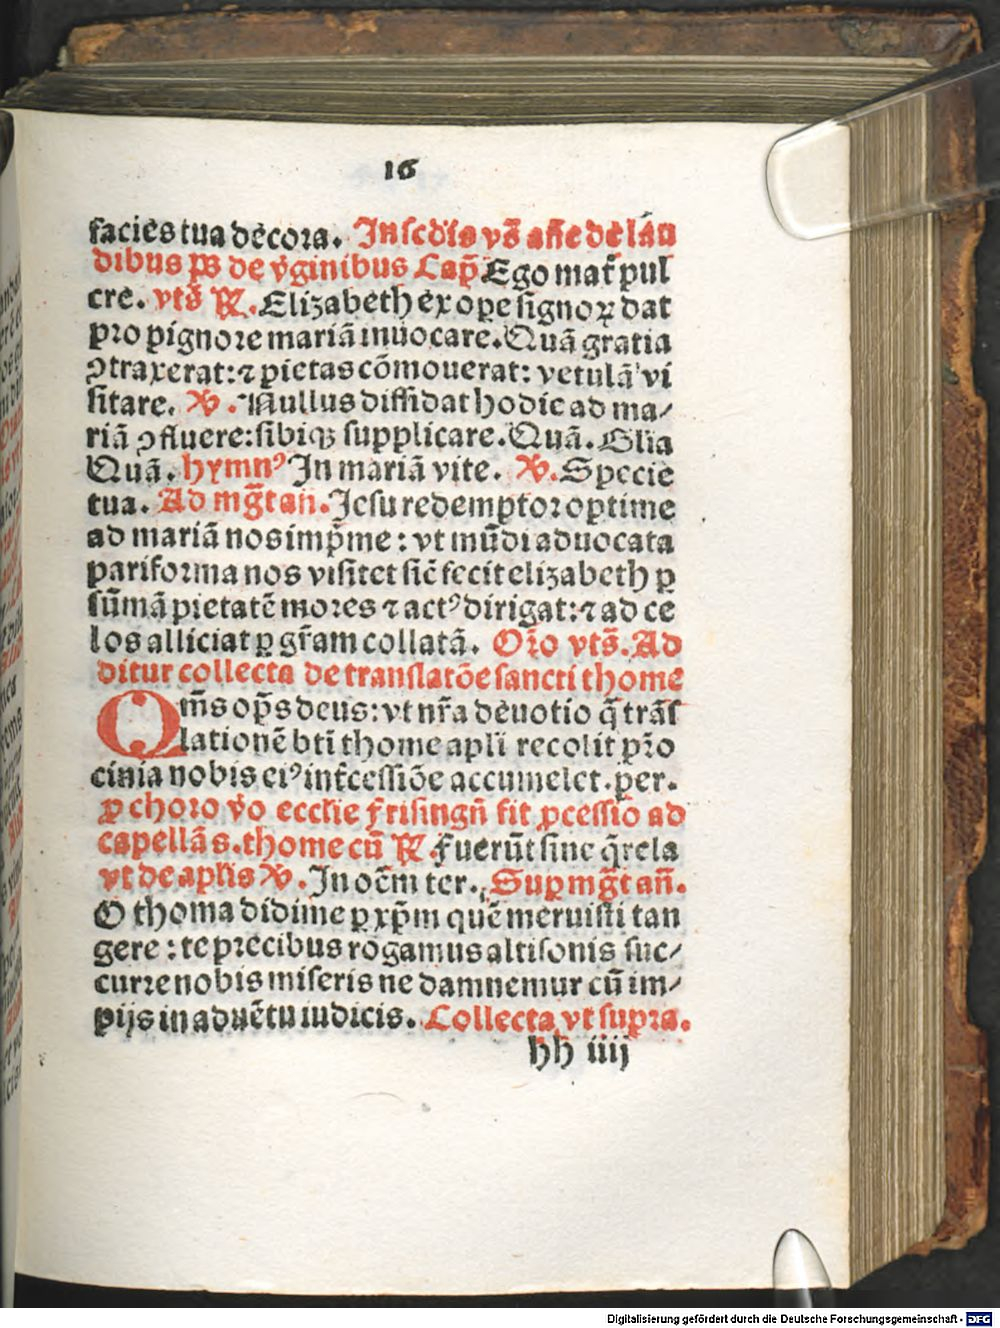 16
facies tua decora. In scd̄is vs̄ an̄e de lau
dibus ps̄ de v̄ginibus Cap̄ Ego mat̄ pul
cre. vts̄ ℟. Elizabeth ex ope signoꝝ dat
pro pignore mariā inuocare. Quā gratia
ꝯtraxerat: ⁊ pietas cōmouerat: vetulā vi
sitare. ℣. Nullus diffidat hodie ad ma⸗
riā ꝯfluere: sibiqꝫ supplicare. Quā. Gl̄ia
Quā. hymnꝰ In mariā vite. ℣. Specie
tua. Ad mḡt an̄. Jesu redemptor optime
ad mariā nos imp̄me: vt mūdi aduocata
pariforma nos visitet sic̄ fecit elizabeth ꝑ
sūmā pietatē mores ⁊ actꝰ dirigat: ⁊ ad ce
los alliciat ꝑ gr̄am collatā. Or̄o vts̄. Ad
ditur collecta de translatōe sancti thome
Om̄s op̄s deus: vt nr̄a deuotio q̄ trāſ
lationē bt̄i thome apl̄i recolit pr̄o
cinia nobis eiꝰ int̄cessiōe accumulet. per.
ꝓ choro v̄o eccl̄ie frisingn̄ fit ꝓcessio ad
capellā s. thome cū ℟. fuerūt sine q̄rela
vt de apl̄is ℣. In oēm ter. Sup mḡt an̄.
O thoma didime ꝑ xp̄m quē meruisti tan
gere: te precibus rogamus altisonis suc⸗
curre nobis miseris ne damnemur cū im⸗
pijs in aduētu iudicis. Collecta vt supra.
hh iiij
Digitalisierung gefördert durch die Deutsche Forschungsgemeinschaft - DFG